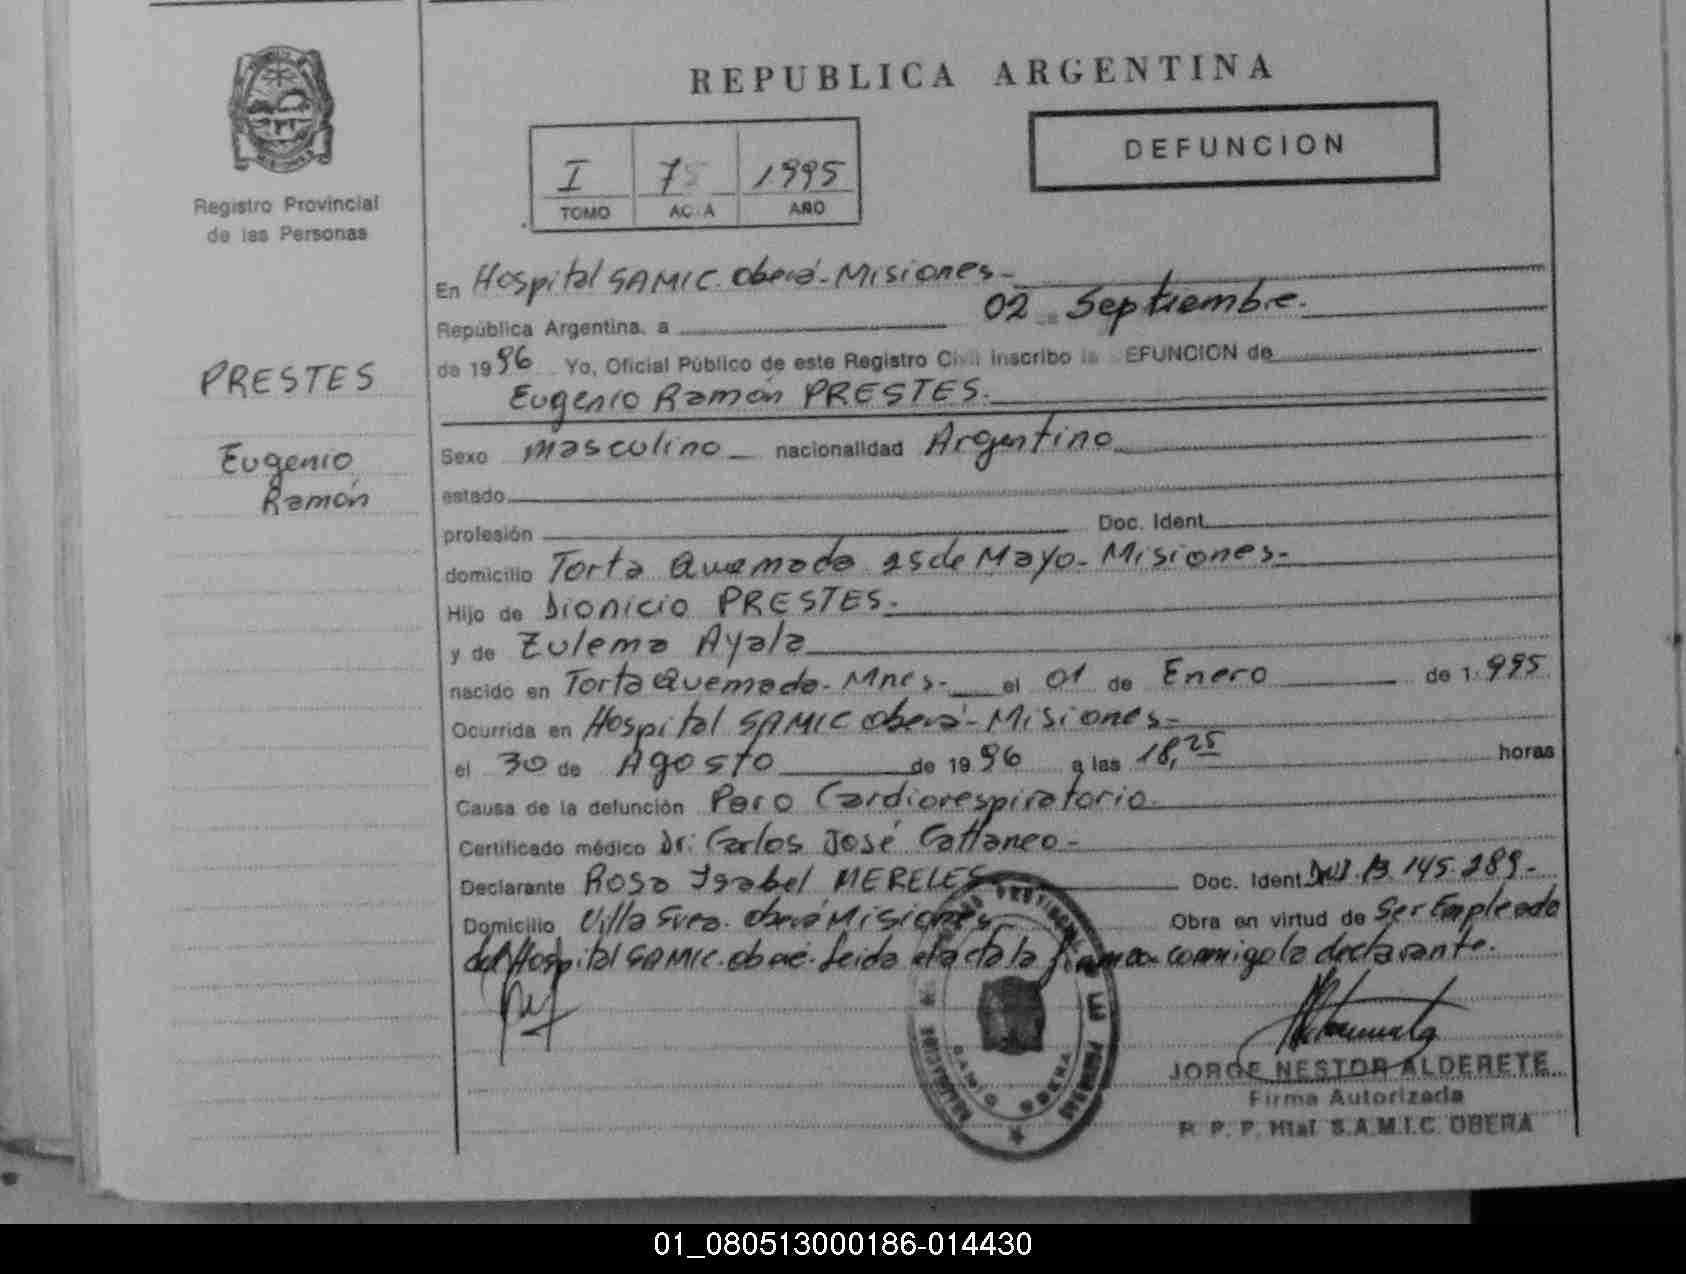 REPUBLICA ARGENTINA
DEFUNCION
I 75 1995
TOMO ACTA AÑO
MISIONES
Registro Provincial
de las Personas
PRESTES
Eugenio
Ramón
En Hospital SAMIC. Oberá - Misiones -
República Argentina, a 02 Septiembre.
de 1996 Yo, Oficial Público de este Registro Civil inscribo la EFUNCION de
Eugenio Ramón PRESTES.
Sexo masculino nacionalidad Argentino
estado
profesión Doc. Ident.
domicilio Torta Quemada 25 de Mayo - Misiones -
Hijo de Dionicio PRESTES.
y de Zulema Ayala
nacido en Torta Quemada - Mnes - el 01 de Enero de 1.995
Ocurrida en Hospital SAMIC Oberá - Misiones -
el 30 de Agosto de 1996 a las 18,25 horas
Causa de la defunción Paro Cardiorespiratorio.
Certificado médico Dr. Carlos José Cattaneo -
Declarante Rosa Isabel MERELES Doc. Ident. DNI. 13.145.289 -
Domicilio Villa Oberá Misiones Obra en virtud de Ser Empleada
del Hospital SAMIC. Oberá. Leida el acta la firma conmigo la declarante.
JORGE NESTOR ALDERETE
Firma Autorizada
R. P. P. Htal. S.A.M.I.C. OBERA
01_080513000186-014430